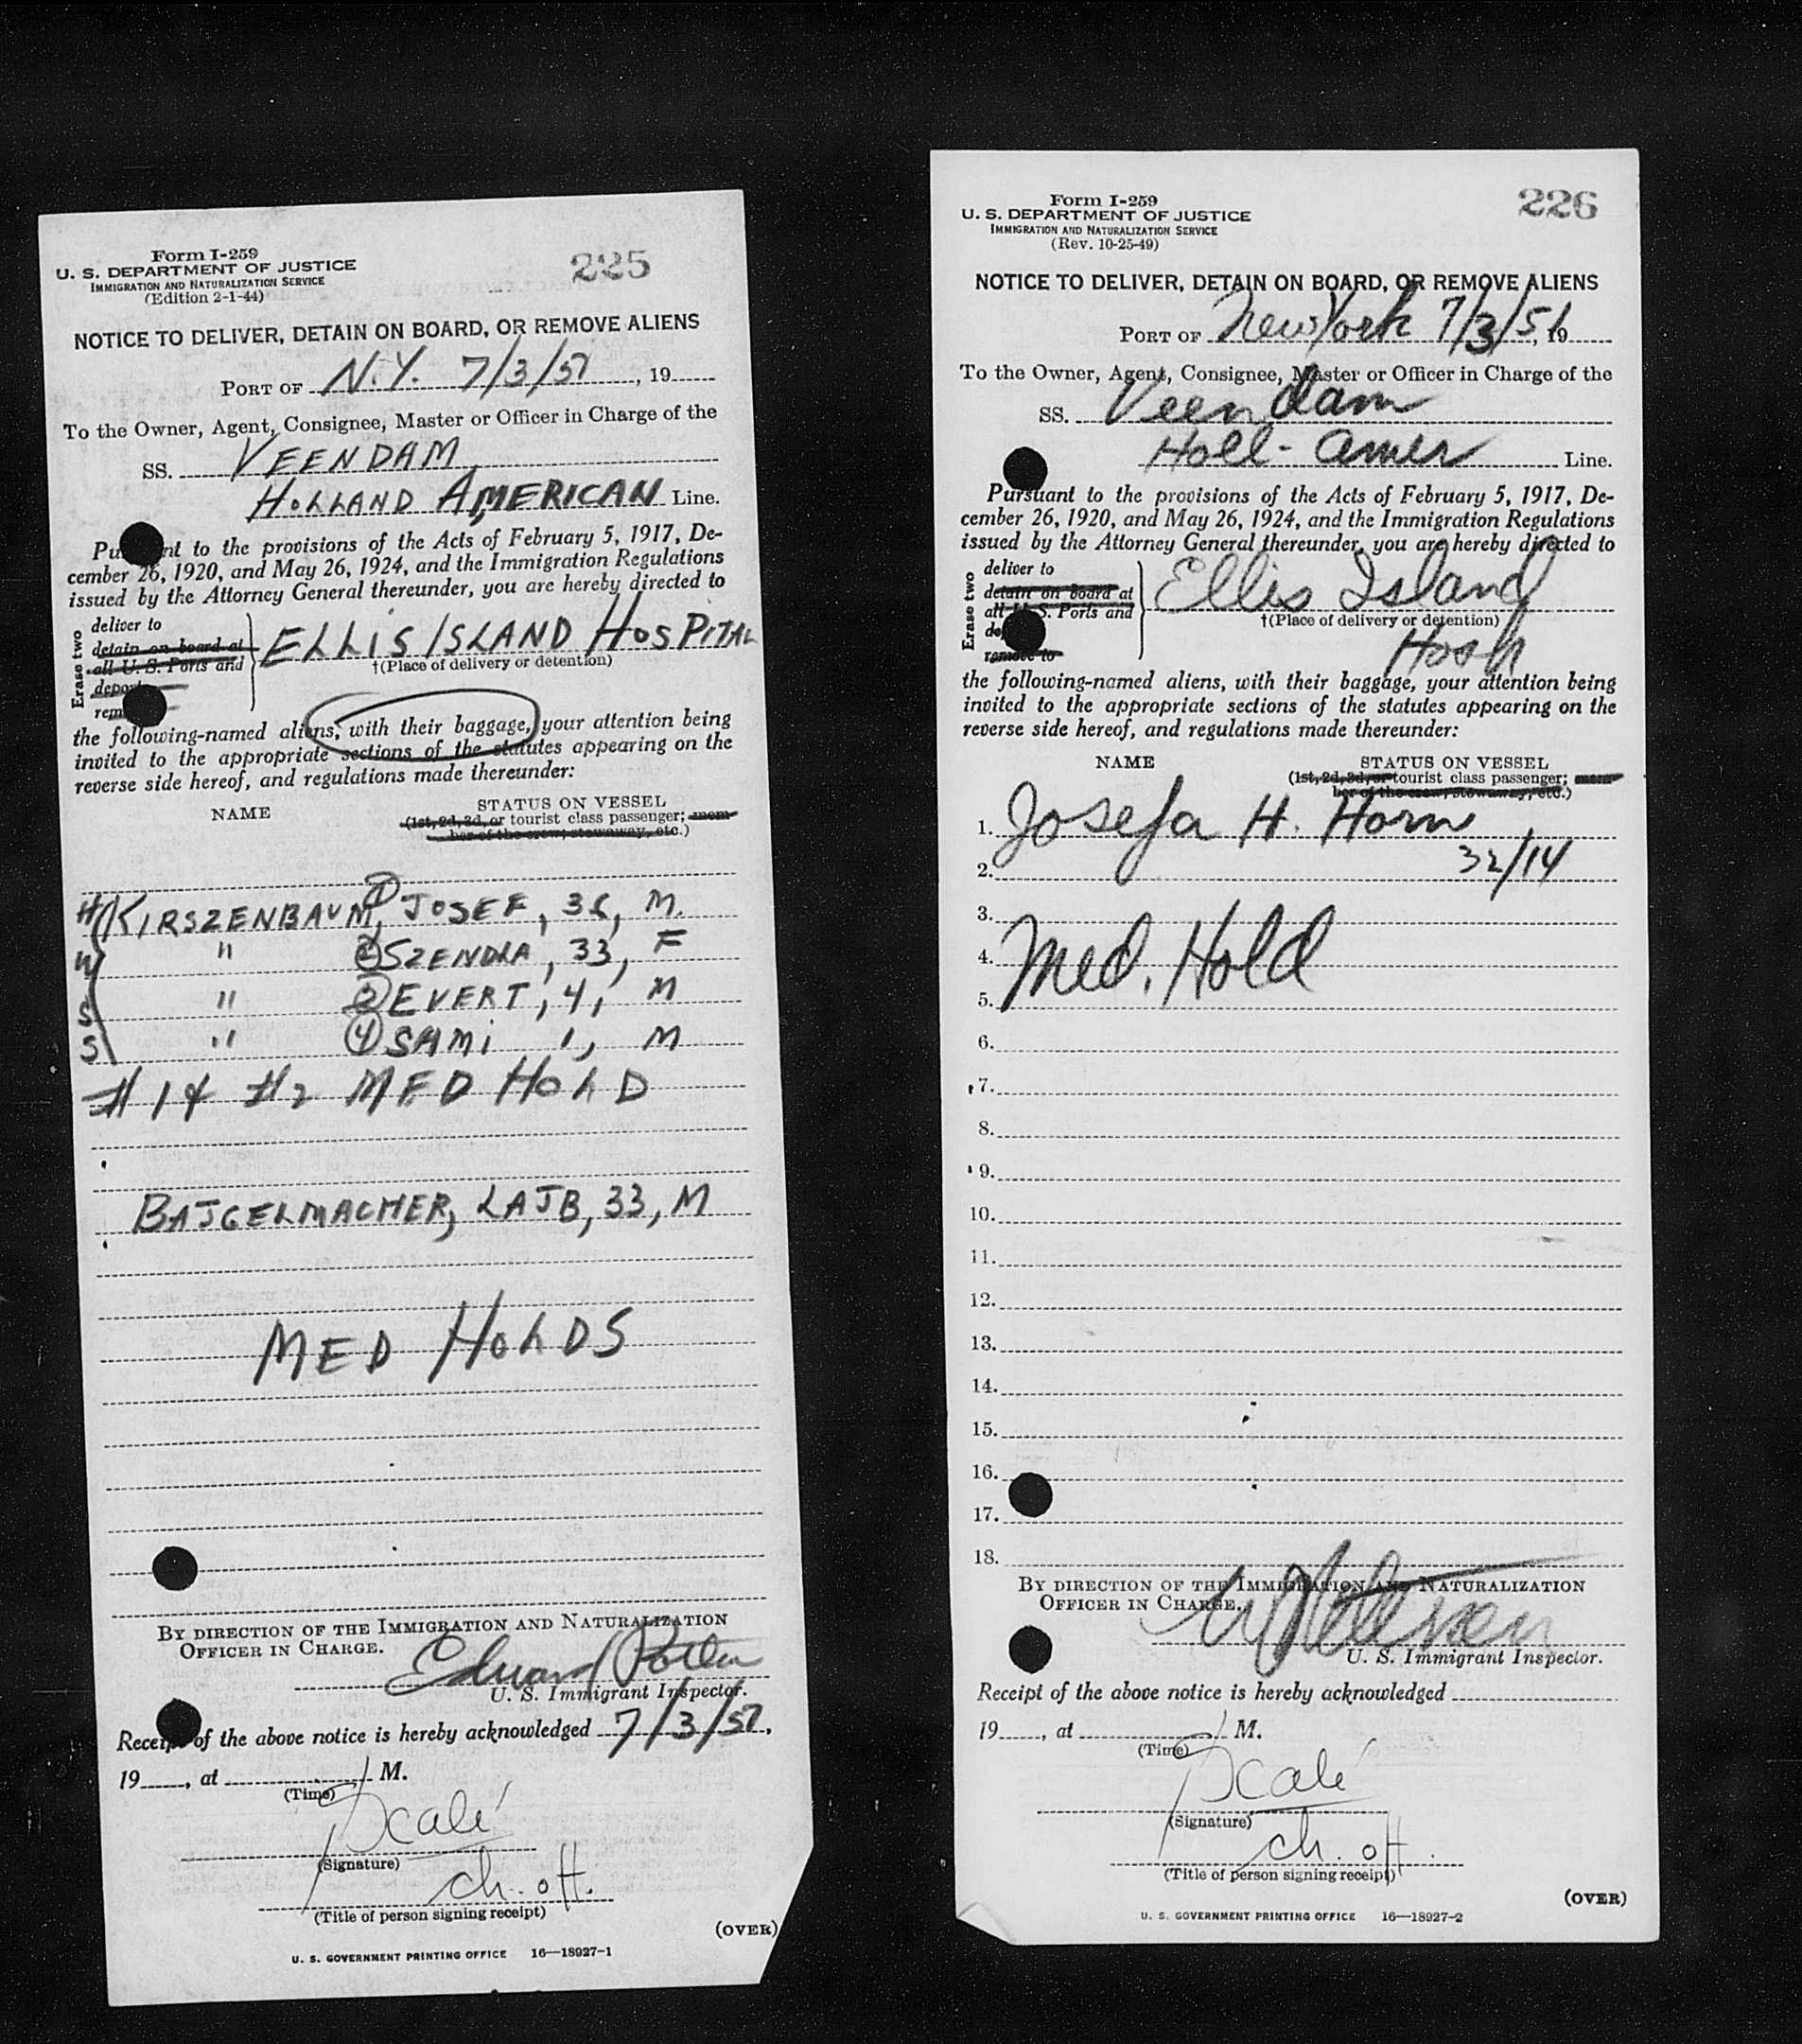 Form I-259
225
U. S. DEPARTMENT OF JUSTICE
IMMIGRATION AND NATURALIZATION SERVICE
(Edition 2-1-44)
NOTICE TO DELIVER, DETAIN ON BOARD, OR REMOVE ALIENS
PORT OF N.Y. 7/3/51, 19
To the Owner, Agent, Consignee, Master or Officer in Charge of the
SS. VEENDAM
HOLLAND AMERICAN Line.
to the provisions of the Acts of February 5, 1917, De-
cember 26, 1920, and May 26, 1924, and the Immigration Regulations
issued by the Attorney General thereunder, you are hereby directed to
Erase two
deliver to
detain on board at
all U. S. Ports and
ELLIS ISLAND HOSPITAL
†(Place of delivery or detention)
the following-named aliens, with their baggage, your attention being
invited to the appropriate sections of the statutes appearing on the
reverse side hereof, and regulations made thereunder:
NAME
STATUS ON VESSEL
(1st, 2d, 3d, or tourist class passenger; mem-
ber of the crew; stowaway, etc.)
H KIRSZENBAUM, 1 JOSEF, 36, M.
W " 2 , 33, F
S " 3 EVERT, 4, M
S " 4 SAMI 1, M
#1 & #2 MED HOLD
BAJGELMACHER, LAJB, 33, M
MED HOLDS
BY DIRECTION OF THE IMMIGRATION AND NATURALIZATION
OFFICER IN CHARGE.
Edward
U. S. Immigrant Inspector.
Receipt of the above notice is hereby acknowledged 7/3/51,
19, at M.
(Time)
Scalé
(Signature)
ch. off.
(Title of person signing receipt)
(OVER)
U. S. GOVERNMENT PRINTING OFFICE 16—18927-1
Form I-259
226
U. S. DEPARTMENT OF JUSTICE
IMMIGRATION AND NATURALIZATION SERVICE
(Rev. 10-25-49)
NOTICE TO DELIVER, DETAIN ON BOARD, OR REMOVE ALIENS
PORT OF New York 7/3/51, 19
To the Owner, Agent, Consignee, Master or Officer in Charge of the
SS. Veendam
Holl-Amer Line.
Pursuant to the provisions of the Acts of February 5, 1917, De-
cember 26, 1920, and May 26, 1924, and the Immigration Regulations
issued by the Attorney General thereunder, you are hereby directed to
Erase two
deliver to
detain on board at
all U. S. Ports and
remove to
Ellis Island
†(Place of delivery or detention)
Hosp
the following-named aliens, with their baggage, your attention being
invited to the appropriate sections of the statutes appearing on the
reverse side hereof, and regulations made thereunder:
NAME
STATUS ON VESSEL
(1st, 2d, 3d, or tourist class passenger; mem-
ber of the crew, stowaway, etc.)
1. Josefa H. Horn
2. 32/14
3.
4. Med. Hold
5.
6.
7.
8.
9.
10.
11.
12.
13.
14.
15.
16.
17.
18.
BY DIRECTION OF THE IMMIGRATION AND NATURALIZATION
OFFICER IN CHARGE.
U. S. Immigrant Inspector.
Receipt of the above notice is hereby acknowledged
19, at M.
(Time)
Scalé
(Signature)
ch. off.
(Title of person signing receipt)
(OVER)
U. S. GOVERNMENT PRINTING OFFICE 16—18927-2